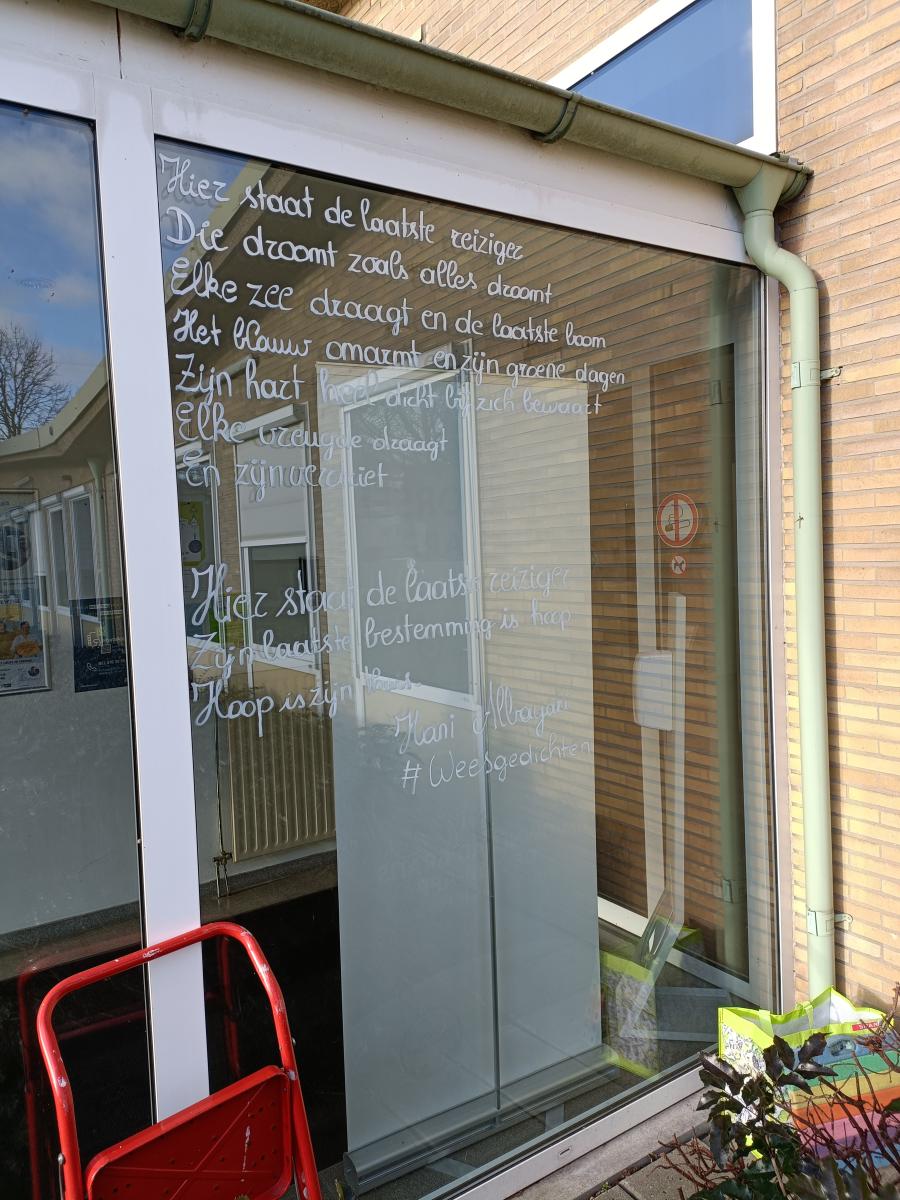 Hier staat de laatste reiziger
Die droomt zoals alles droomt
Elke zee draagt en de laatste boom
Het blauw omarmt en zijn groene dagen
Zijn hart heel dicht bij zich bewaart
Elke vreugde draagt
En zijn verdriet
Hier staat de laatste reiziger
Zijn laatste bestemming is hoop
Hoop is zijn thuis
Hani Albayari
#Weesgedichten